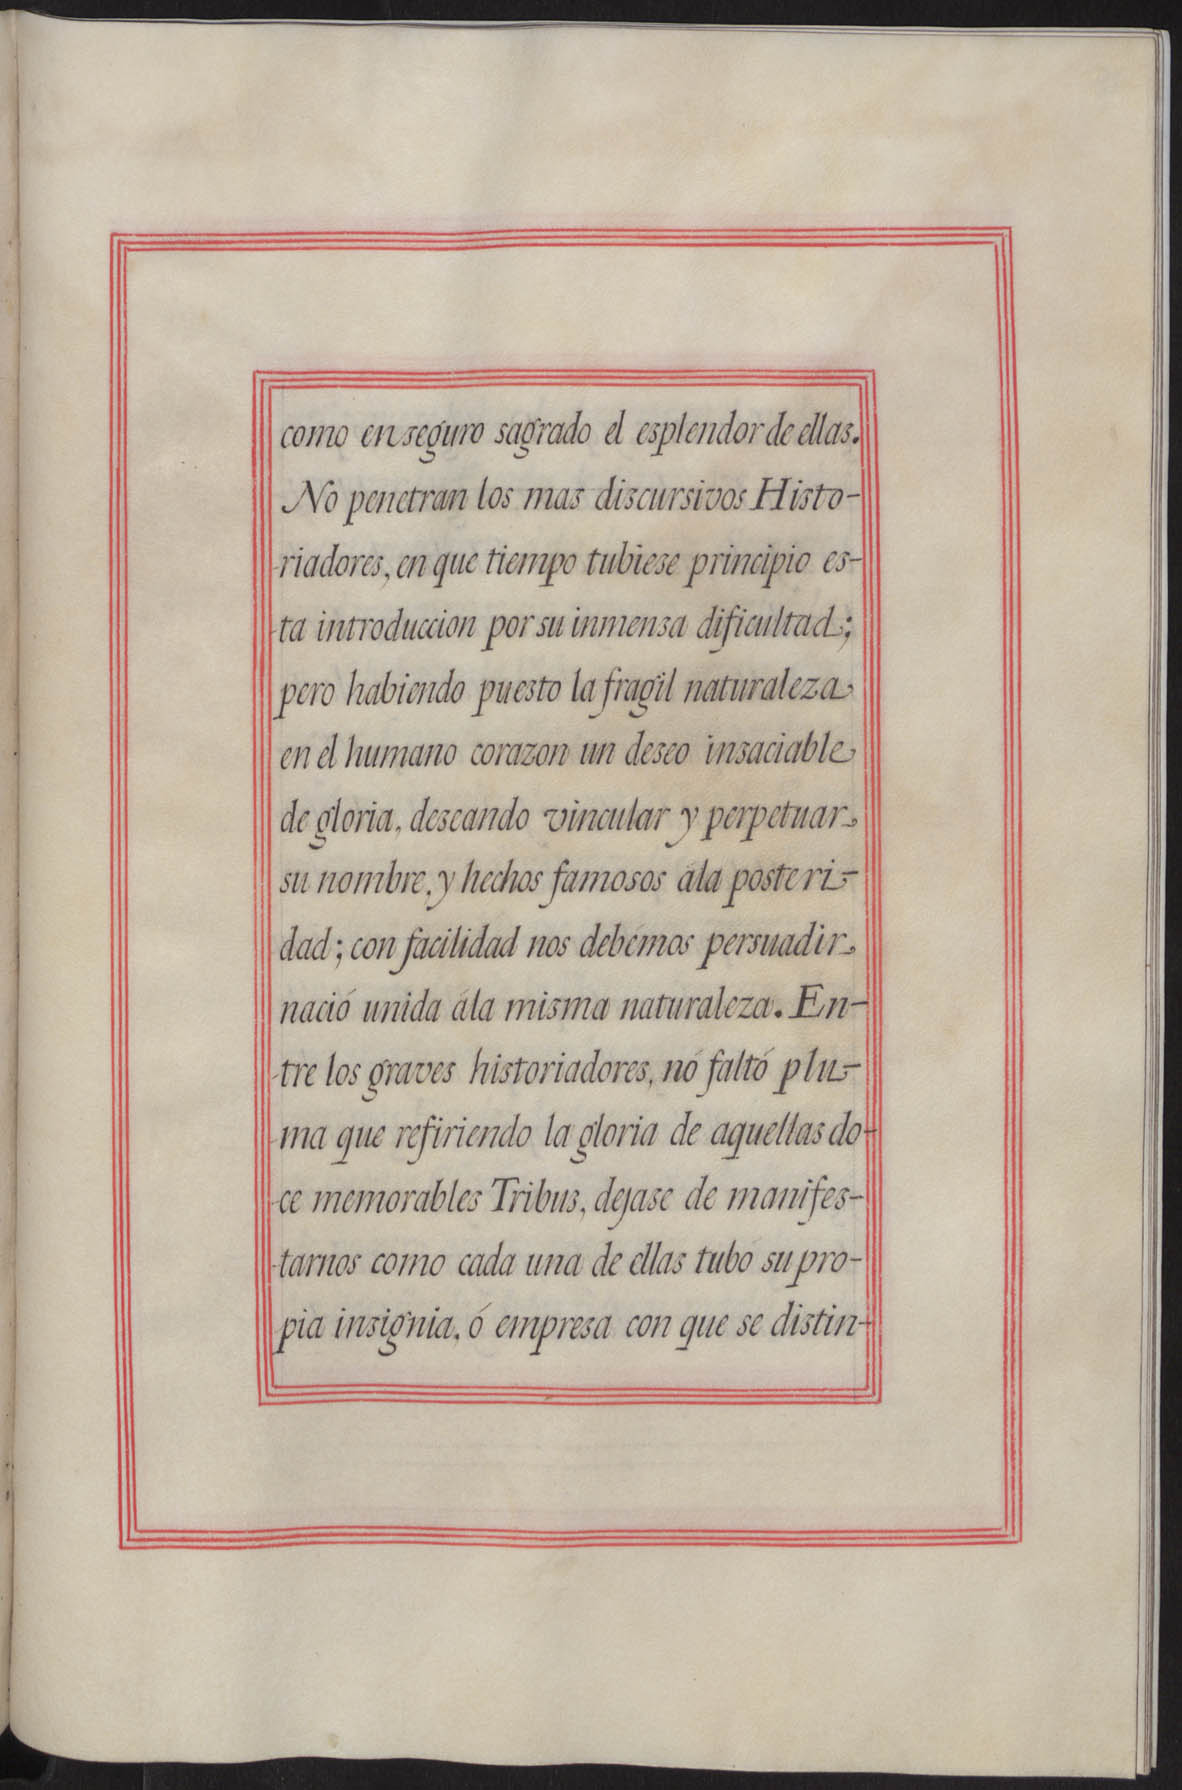 como en seguro sagrado el esplendor de ellas.
No penetran los mas discursivos Histo-
riadores, en que tiempo tubiese principio es-
ta introduccion por su inmensa dificultad;
pero habiendo puesto la fragil naturaleza
en el humano corazon un deseo insaciable
de gloria, deseando vincular y perpetuar
su nombre, y hechos famosos ala posteri-
dad; con facilidad nos debemos persuadir
nació unida ála misma naturaleza. En-
tre los graves historiadores, nó faltó plu-
ma que refiriendo la gloria de aquellas do-
ce memorables Tribus, dejase de manifes-
tarnos como cada una de ellas tubo su pro-
pia insignia, ó empresa con que se distin-